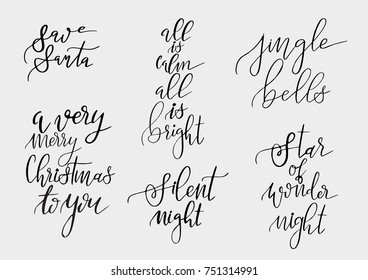 Save
Santa
all
is
calm
all
is
bright
jingle
bells
a very
merry
Christmas
to you
Silent
night
Star
of
wonder
night
shutterstock.com · 751314991